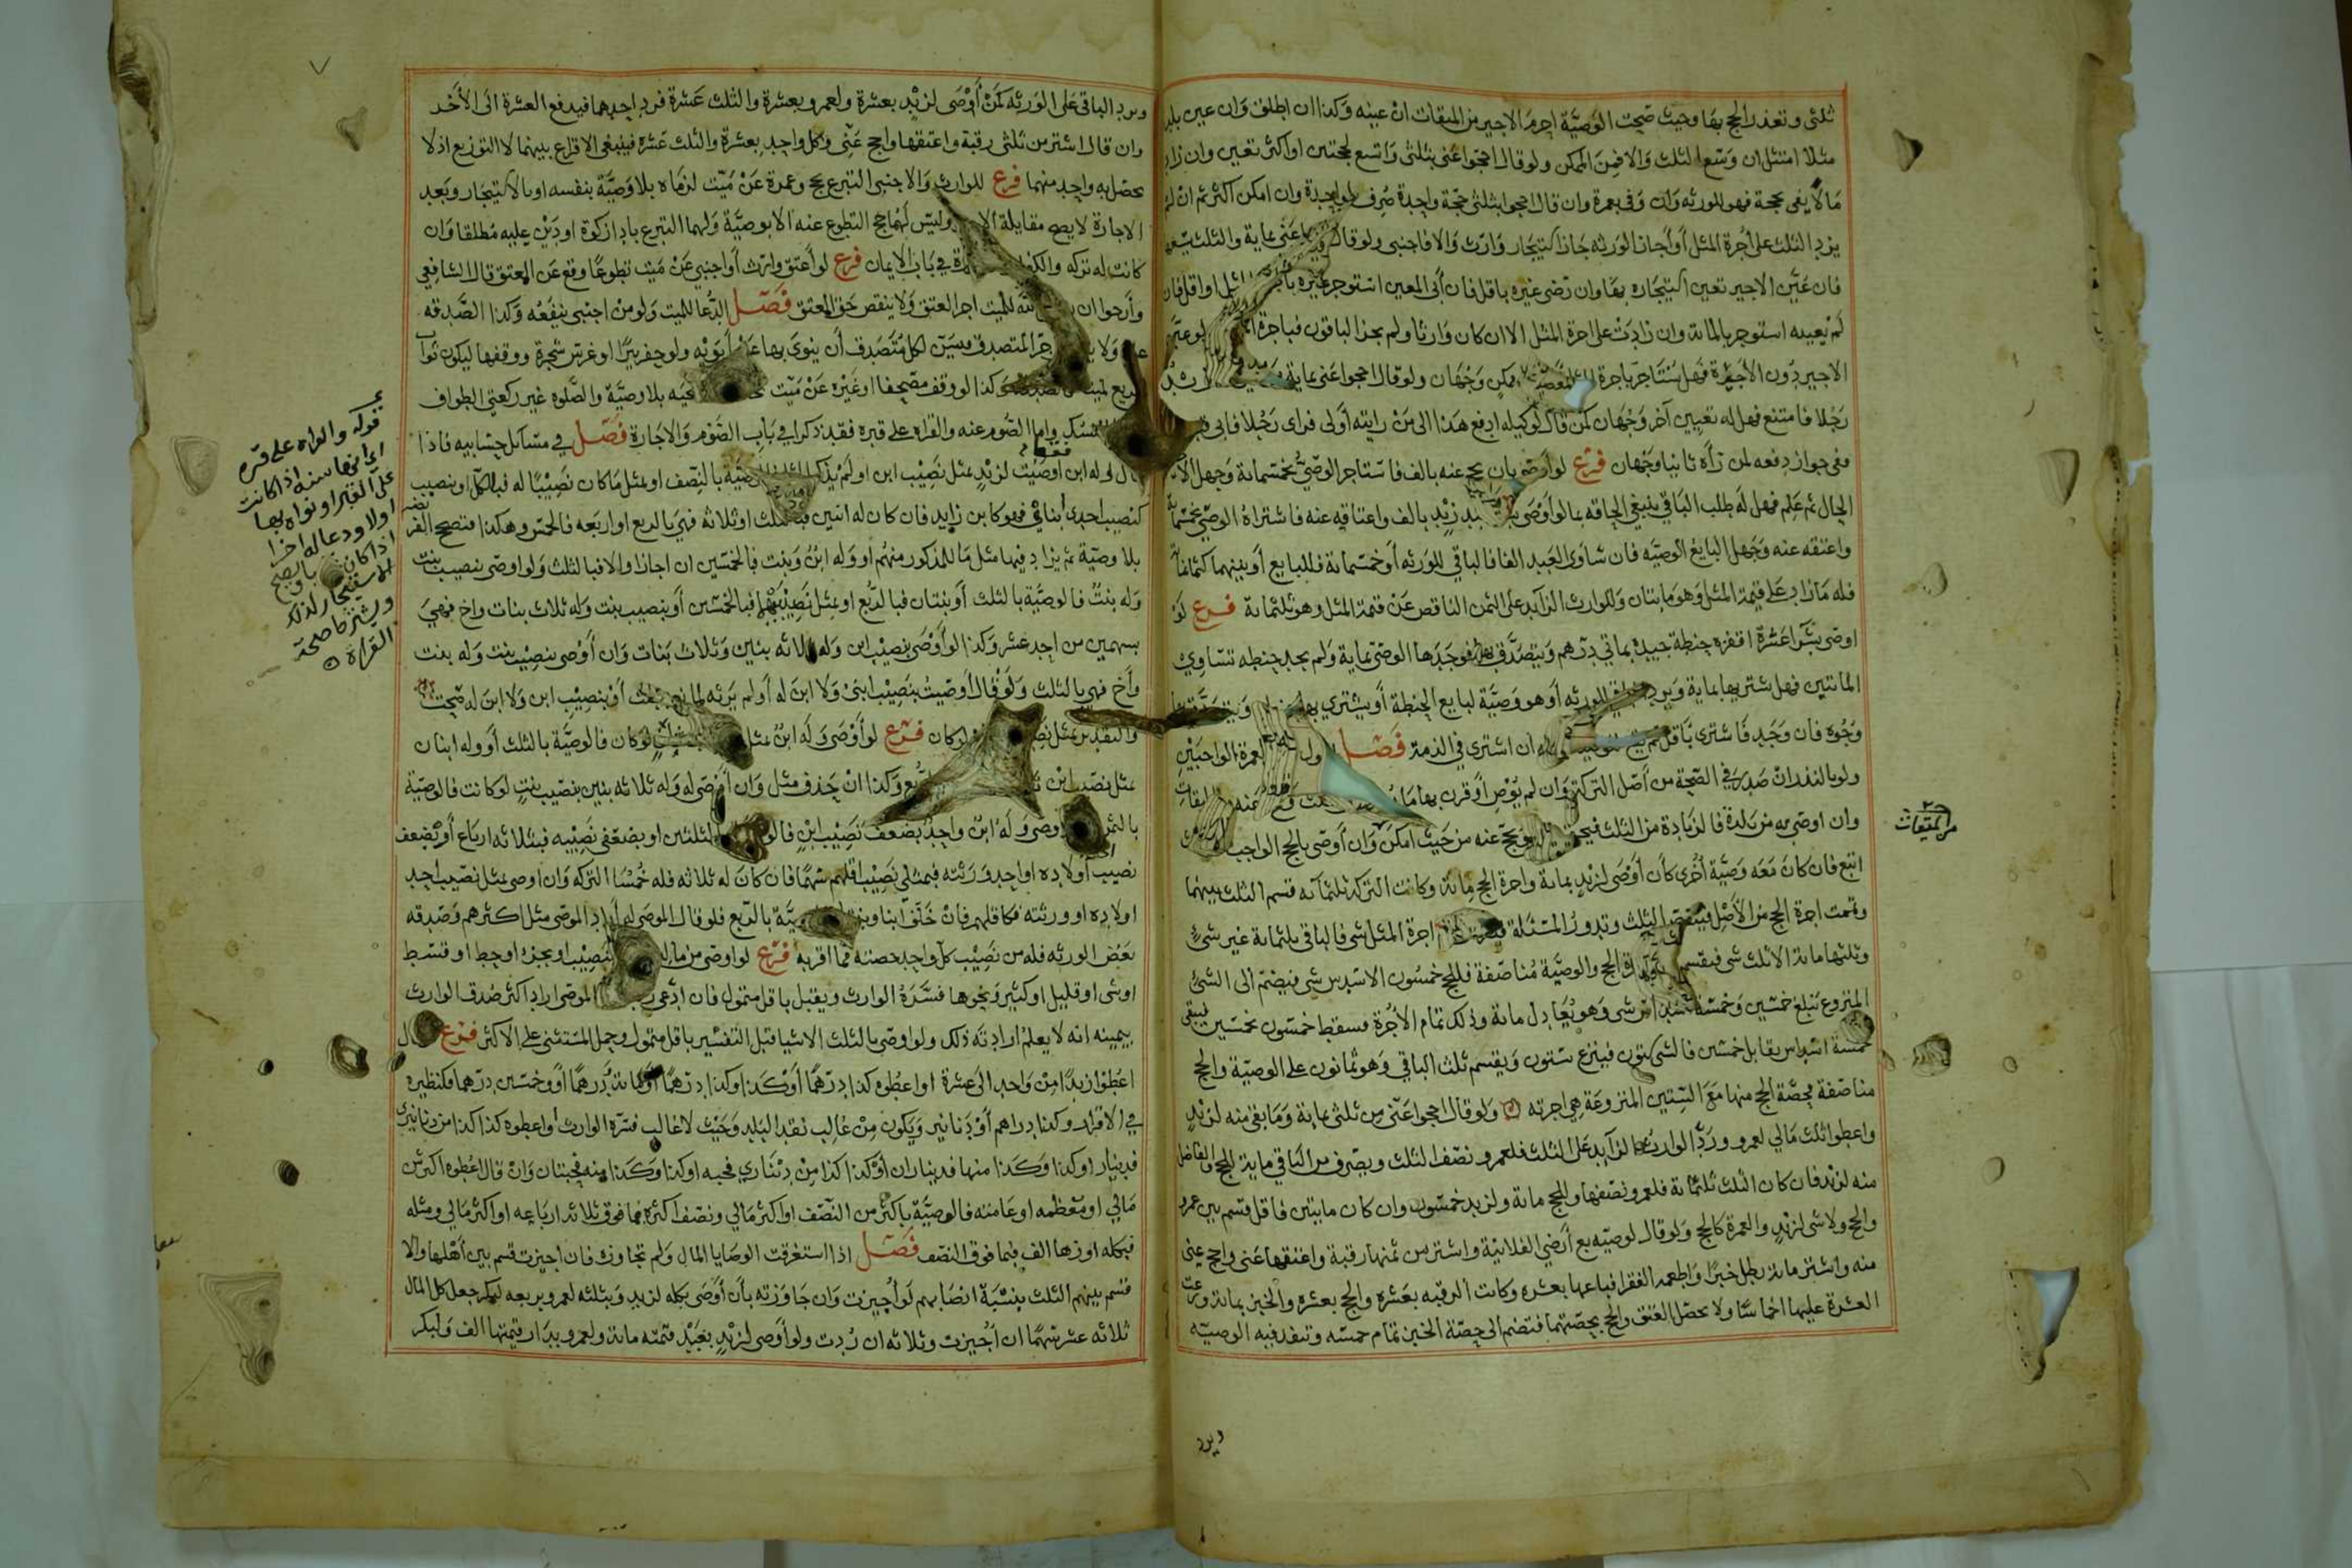 ثلثى وتعذر الحج بها وحيث صحت الوصية احرم الاجير من الميقات ان عينه وكذا ان اطلق وان عين بلد
مثلا امتثل ان وسع الثلث والا فمن الممكن ولو قال احجوا عنى بثلثى واتسع لحجتين او اكثر تعين وان زاد
مالا يفى بحجة فهو للورثه وان وفى بعمرة وان قال احجوا بثلثى حجة واحدة صرف لواحدة وان امكن اكثر ثم ان لم
يزد الثلث على اجرة المثل او اجاز الورثه جاز استيجار وارث والا فاجنبى ولو قال عنى بماية والثلث يسعها
فان عين الاجير تعين استيجاره بها وان رضى غيره باقل فان أبى المعين استوجر غيره او اقل فان
لم يعينه استوجر بالمائة وان زادت على اجرة المثل الا ان كان وارثا ولم يجز الباقون فباجرة لو عين
الاجير دون الاجرة فهل يستاجر باجرة وجهان ولو قال احجوا عنى بماية
رجلا فامتنع فهل له تعيين آخر وجهان كمن قال لوكيله ادفع هذا الى من رايته أولى فراى رجلا فابى
ففى جواز دفعه لمن رآه ثانيا وجهان فرع لو اوصى بان يحج عنه بالف فاستاجر الوصى بخمسمائة وجهل الاجير
الحال ثم علم فهل له طلب الباقى ينبغى الحاقه بما لو أوصى زيد بالف واعتاقه عنه فاشتراه الوصى بخمسمائة
واعتقه عنه وجهل البايع الوصيه فان ساوى العبد الفا فالباقى للورثه أو خمسمائة فللبايع أو بينهما
فله ما زاد على قيمة المثل وهو مايتان وللوارث الزايد على الثمن الناقص عن قيمة المثل وهو ثلثمائة فرع لو
اوصى بشرا عشرة اقفزه حنطة جيدة بمائتى درهم ويتصدق بها فوجدها الوصى بماية ولم يجد حنطه تساوى
المائتين فهل يشتريها بماية ويرد الباقى للورثه أو هو وصية لبايع الحنطة أو يشترى بها
وجوه فان وجد فاشترى باقل ان اشترى فى الذمة فصل العمرة الواجبين
ولو بالنذر ان صدر فى الصحة من أصل التركة وان لم يوص أو قرن بها
وان اوصى به من بلدة فالزيادة من الثلث عنه من حيث امكن وان أوصى بالحج الواجب
اتبع فان كان معه وصية أخرى كأن أوصى لزيد بمائة واجرة الحج مائة وكانت التركة ثلثمائه قسم الثلث بينهما
وتممت اجرة الحج من الأصل فينقص الثلث وتدور المسئلة اجرة المثل شى فالباقى ثلثمائة غير شى
وثلثها مائة الا ثلث شى فيقسم الحج والوصية مناصفة فللحج خمسون الا سدس شى فيضم الى الشى
المنزوع تبلغ خمسين وخمسة أسداس شى وهو يعادل مائة وذلك تمام الأجرة فسقط خمسون بخمسين تبقى
خمسة اسداس يقابل خمسين فالشى ستون فينزع ستون ويقسم ثلث الباقى وهو ثمانون على الوصية والحج
مناصفة فحصة الحج منها مع الستين المنزوعة هى اجرته ولو قال احجوا عنى من ثلثى بماية وما بقى منه لزيد
واعطوا ثلث مالى لعمرو ورد الوارث الزايد على الثلث فلعمرو نصف الثلث ويصرف من الباقى ماية للحج والفاضل
منه لزيد فان كان الثلث ثلثمائة فلعمرو نصفها وللحج مائة ولزيد خمسون وان كان مايتين فاقل قسم بين عمرو
والحج ولا شى لزيد والعمرة كالحج ولو قال لوصيه بع أرضى الفلانية واشتر من ثمنها رقبة واعتقها عنى واحج عنى
منه واشتر مائة رطل خبزا واطعمه الفقرا فباعها بعشره وكانت الرقبه بعشره والحج بعشره والخبز بمائة
العشرة عليها اخماسا ولا يحصل العتق والحج بحصتهما فتضم الى حصة الخبز تمام خمسه وتنفد فيه الوصيه
من الميقات
ويرد
ويرد الباقى على الورثه كمن أوصى لزيد بعشرة ولعمرو بعشرة والثلث عشرة فرد احدهما فيدفع العشرة الى الأخر
وان قال اشتر من ثلثى رقبة واعتقها واحج عنى وكل واحد بعشرة والثلث عشرة فينبغى الاقراع بينهما لا التوزيع اذ لا
يحصل به واحد منهما فرع للوارث والاجنبى التبرع بحج وعمرة عن ميت لزماه بلا وصية بنفسه او بالاستيجار وبعد
الاجارة لا يصح مقايلة وليس لهما حج التطوع عنه الا بوصية ولهما التبرع باداء زكوة او دين عليه مطلقا وان
كانت له تركه فى باب الايمان فرع لو أعتق وارث أو اجنبى عن ميت تطوعا وقع عن المعتق قال الشافعى
وأرجوا ان للميت اجر العتق ولا ينقص حق المعتق فصل الدعا للميت ولو من اجنبى ينفعه وكذا الصدقه
عنه ولا اجر المتصدق فيسن لكل متصدق أن ينوى بها عن أبويه ولو حفر بيرا او غرس شجرة ووقفها ليكون ثواب
الريع لميت كذا لو وقف مصحفا او غيره عن ميت بلا وصية والصلوه غير ركعتى الطواف
واما الصوم عنه والقراه على قبره فقد ذكرا فى باب الصوم والاجارة فصل فى مسائل حسابيه فاذا
قال وله ابن اوصيت لزيد بمثل نصيب ابن او لم بالنصف او بمثل ما كان نصيبا له فبالكل او بنصيب
كنصيب احدى أبنائى فهو كابن زايد فان كان له اثنين فبالثلث او ثلاثه فهى بالربع او اربعه فالخمس وهكذا فتصح الفريضة
بلا وصية ثم يزاد فيها مثل ما للمذكور منهم او وله ابن وبنت فالخمسين ان اجازا والا فبالثلث ولو اوصى بنصيب بنت
وله بنت فالوصية بالثلث أو بنتان فبالربع او بمثل نصيبهما فبالخمسين أو بنصيب بنت وله ثلاث بنات واخ فهى
بسهمين من احد عشر وكذا لو أوصى بنصيب ابن وله ثلاثه بنين وثلاث بنات وان أوصى بنصيب بنت وله بنت
وأخ فهى بالثلث ولو قال أوصيت بنصيب ابنى ولا ابن له أو لم يرثه لمانع بطلت أو بنصيب ابن ولا ابن له صحت
والتقدير بمثل لو كان فرع لو أوصى وله ابن بمثل لو كان فالوصية بالثلث أو وله ابنان
بمثل نصيب ابن وكذا ان حذف مثل وان أوصى له وله ثلاثه بنين بنصيب بنت لو كانت فالوصية
بالثمن اوصى وله ابن واحد بضعف نصيب ابن بالثلثين او بضعفى نصيبه فبثلاثه ارباع أو بضعف
نصيب أولاده او احد ورثته فبمثلى نصيب اقلهم سهما فان كان له ثلاثه فله خمسا التركه وان اوصى بمثل نصيب احد
اولاده او ورثته فكاقلهم فان خلف ابنا وبنتا بالربع فلو قال الموصى له أراد الموصى مثل اكثرهم وصدقه
بعض الورثه فله من نصيب كل واحد حصته مما اقر به فرع لو اوصى من ماله بنصيب او بجزء او حظ او قسط
او شى او قليل او كثير ونحوها فسره الوارث ويقبل باقل متمول فان ادعى الموصى اراد اكثر صدق الوارث
بيمينه انه لا يعلم ارادته ذلك ولو اوصى بالثلث الا شيا قبل التفسير باقل متمول وحمل المستثنى على الاكثر فرع قال
اعطوا زيدا من واحد الى عشرة او اعطوه كذا درهما أو كذا وكذا درهما أو مائة ودرهما أو وخمسين درهما فكنظيره
فى الاقرار وكذا دراهم أو دنانير ويكون من غالب نقد البلد وحيث لا غالب فسره الوارث أو اعطوه كذا كذا من دنانيرى
فدينار او كذا وكذا منها فديناران أو كذا كذا من دينارى فحبه او كذا وكذا منه فحبتان وان قال اعطوه اكثر من
مالى او معظمه او عامته فالوصية باكثر من النصف او اكثر مالى ونصف اكثره فما فوق ثلاثه ارباعه او اكثر مالى ومثله
فبكله او زها الف فبما فوق النصف فصل اذا استغرقت الوصايا المال ولم تجاوزه فان اجيزت قسم بين أهلها والا
قسم بينهم الثلث بنسبة انصبائهم لو أجيزت وان جاوزته بأن أوصى بكله لزيد وبثلثه لعمرو بربعه لبكر جعل كل المال
ثلاثه عشر سهما ان أجيزت وثلاثه ان ردت ولو أوصى لزيد بعبد قيمته مائة ولعمرو بدار قيمتها الف ولبكر
قوله والقراه على قبره
اى انها سنة اذا كانت
على القبر او نواه بها
اولا ودعا له اخرا
اذا كان ويصح
الاستيجار لذلك
القراة